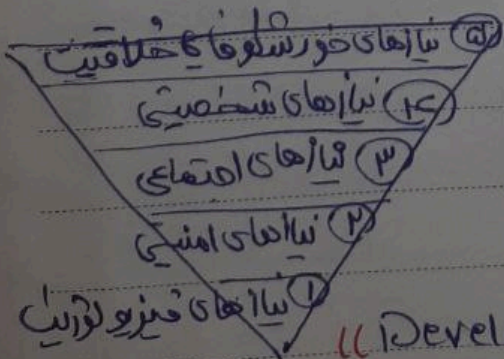 ۵ نیازهای خودشکوفایی خلاقیت
۴ نیازهای شخصیتی
۳ نیازهای اجتماعی
۲ نیازهای امنیتی
۱ نیازهای فیزیولوژیک
(( Devel